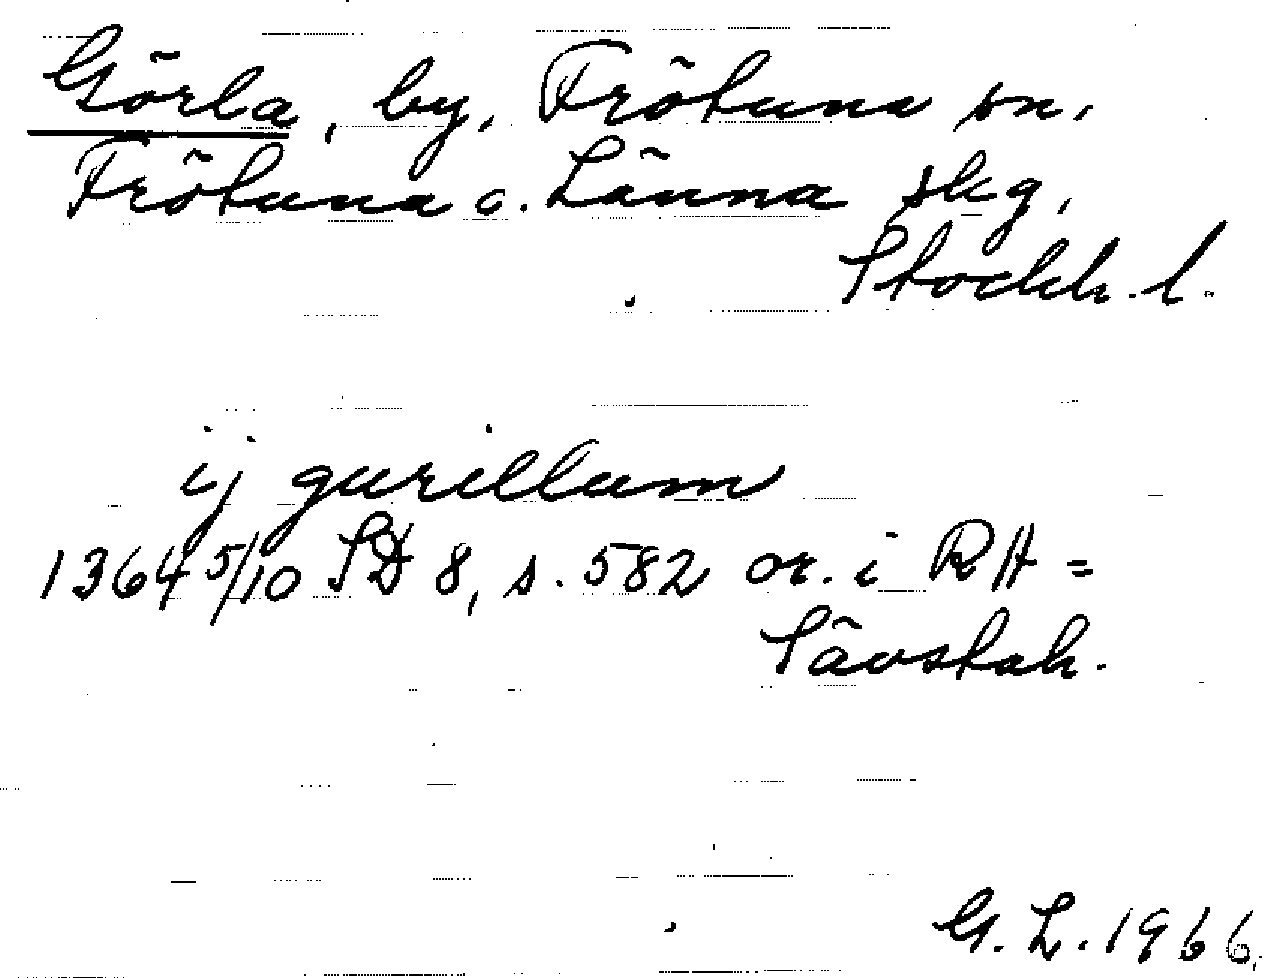 Görla, by, Frötuna sn,
Frötuna o. Länna skg,
Stockh. l.
ij gurillum
1364 5/10 SD 8, s. 582 or. i RA =
Sävstah.
G. L. 1966.